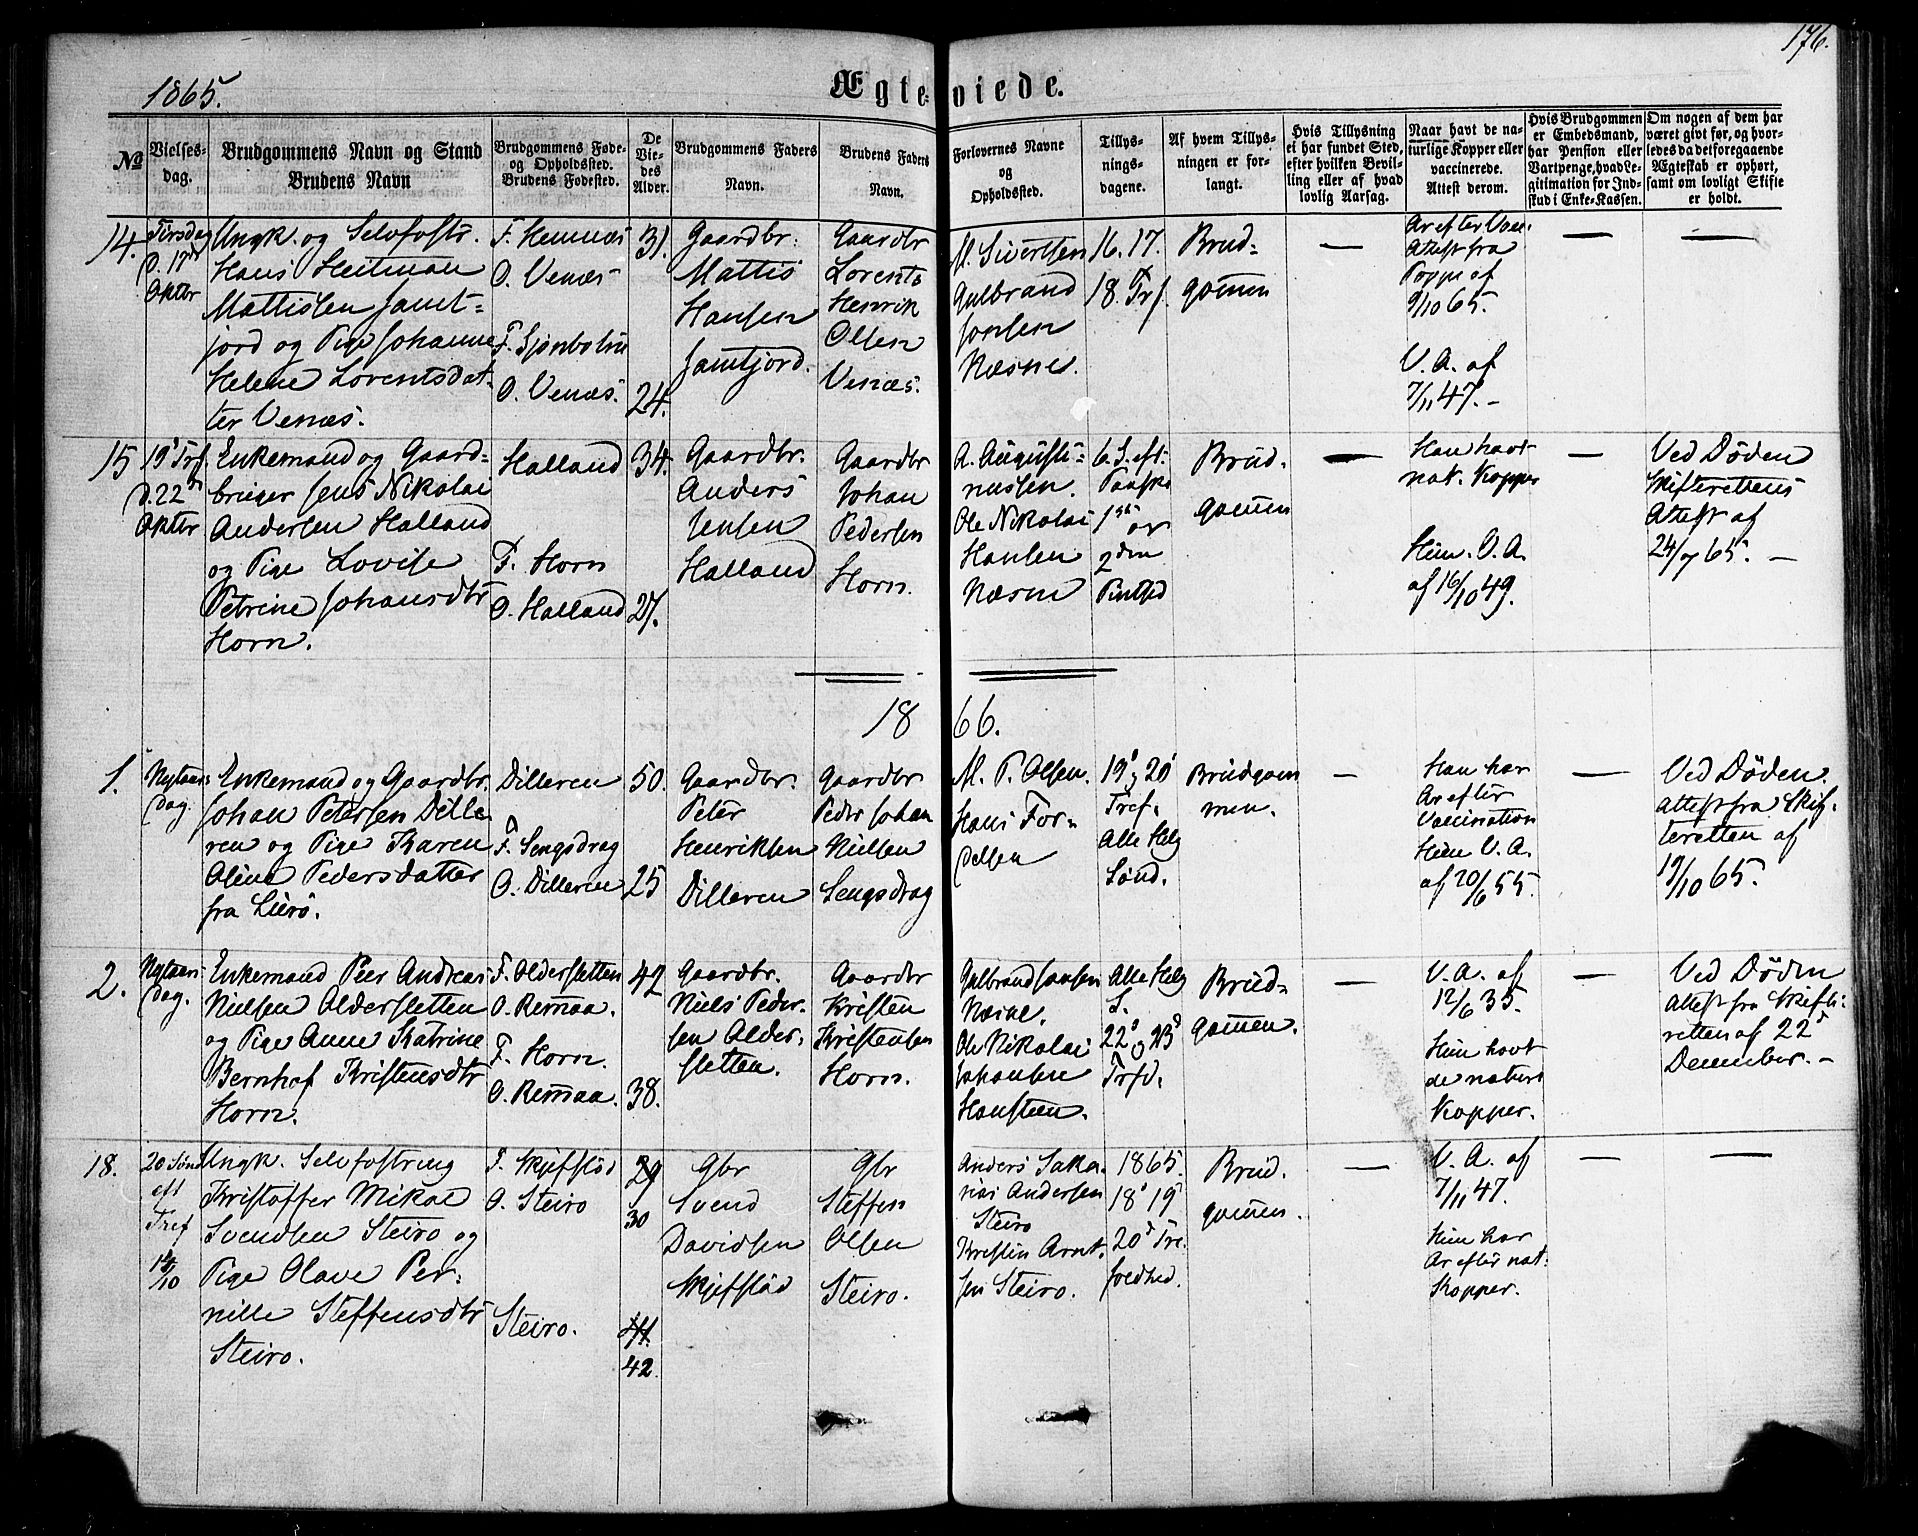 176.
1865.
Ægteviede.
No
Vielses-
dag.
Brudgommens Navn og Stand
Brudens Navn
Brudgommens Føde-
og Opholdssted.
Brudens Fødested.
De
Vie-
des
Alder.
Brudgommens Faders
Navn.
Brudens Faders
Navn.
Forlovernes Navne
og
Opholdssted.
Tillys-
nings-
dagene.
Af hvem Tillys-
ningen er for-
langt.
Hvis Tillysning
ei har fundet Sted,
efter hvilken Bevil-
ling eller af hvad
lovlig Aarsag.
Naar havt de na-
turlige Kopper eller
vaccinerede.
Attest derom.
Hvis Brudgommen
er Embedsmand,
har Pension eller
Vartpenge, hvad Le-
gitimation for Ind-
skud i Enke-Kassen.
Om nogen af dem har
været givt før, og hvor-
ledes da det foregaaende
Ægteskab er ophørt,
samt om lovligt Skifte
er holdt.
14.
Tirsdag
d. 17de
Okter
Ungk. og Selvfostr.
Hans Heitman
Mattisen Jamt-
jord og Pige Johanne
Helene Lorentsdat-
ter Venæs.
F. Hemnæs
O. Venæs
F. Sjonbotn
O. Venæs.
31.
24.
Gaardbr.
Mattis
Hansen
Jamtjord.
Gaardbr
Lorents
Henrik
Olsen
Venæs.
M. Sivertsen
Gulbrand
Jonsen
Næsne.
16. 17.
18. Trf.
Brud-
gommen
—
Ar efter Vacc.
Attest fra
Poppe af
9/10 65.
V. A. af
7/11 47. –
—
—
15
19s Trf.
d. 22de
Okter
Enkemand og Gaard-
bruger Jens Nikolai
Andersen Halland
og Pige Lovise
Petrine Johansdtr
Horn.
Halland
F. Horn
O. Halland
34.
27.
Gaardbr.
Anders
Jensen
Halland
Gaardbr
Johan
Pedersen
Horn.
A. Augusti-
nussen.
Ole Nikolai
Hansen
Næsne
6. S. eft.
Paaske
1ste og
2den
Pintsed
Brud-
gommen
—
Han havt
nat. Kopper
Hun. V. A.
af 16/10 49.
—
Ved Døden
Skifterettens
Attest af
24/7 65. –
1866.
1.
Nytaars
dag.
Enkemand og Gaardbr.
Johan Petersen Dille-
ren og Pige Karen
Oline Pedersdatter
fra Lurø.
Dilleren
F. Sengsdrag
O. Dilleren
50.
25
Gaardbr.
Peter
Henriksen
Dilleren
Gaardbr
Peder Johan
Nielsen
Sengsdrag
M. P. Olsen.
Hans For-
delsen
19s 20s
Tref.
Alle Helg
Sønd.
Brudgom
men.
—
Han har
Ar efter
Vaccination
Hun V. A.
af 20/6 55.
—
Ved Døden.
attest fra Skif-
teretten af
19/10 65.
2.
Nytaars-
dag.
Enkemand Peer Andreas
Nielsen Alderssletten
og Pige Anne Katrine
Bernhof Kristensdtr
Horn.
F. Aldersletten
O. Remaa.
F. Horn.
O. Remaa.
47
38.
Gaardbr.
Niels Peder-
sen Alder-
sletten.
Gaardbr
Kristen
Kristensen
Horn.
Gulbrand Jonsen
Næsne.
Ole Nikolai
Johansen
Hansteen.
Alle Helg
S.
22s og 23d
Trfd.
Brud-
gommen.
—
V. A. af
12/6 35.
Hun havt
de naturl
Kopper.
—
Ved Døden
Attest fra Skifte-
retten af 22d
December. –
18.
20 Sønd
eft
Tref
15/10
Ungk. Selvfostring
Kristoffer Mikal
Svendsen Steiro og
Pige Olave Per-
nille Steffensdtr
Steiro.
F. Skjefstød
O. Steiro
Steiro.
29
30
41.
42.
Gbr
Svend
Davidsen
Skjefstød
Gbr
Steffen
Olsen
Steiro.
Anders Saka-
rias Andersen
Steiro
Kristen Arnt-
sen Steiro.
1865.
18s 19s
20d Tre-
foldhed.
Brud-
gommen.
—
V. A. af
7/11 47.
Hun har
Ar efter nat.
Kopper.
—
—